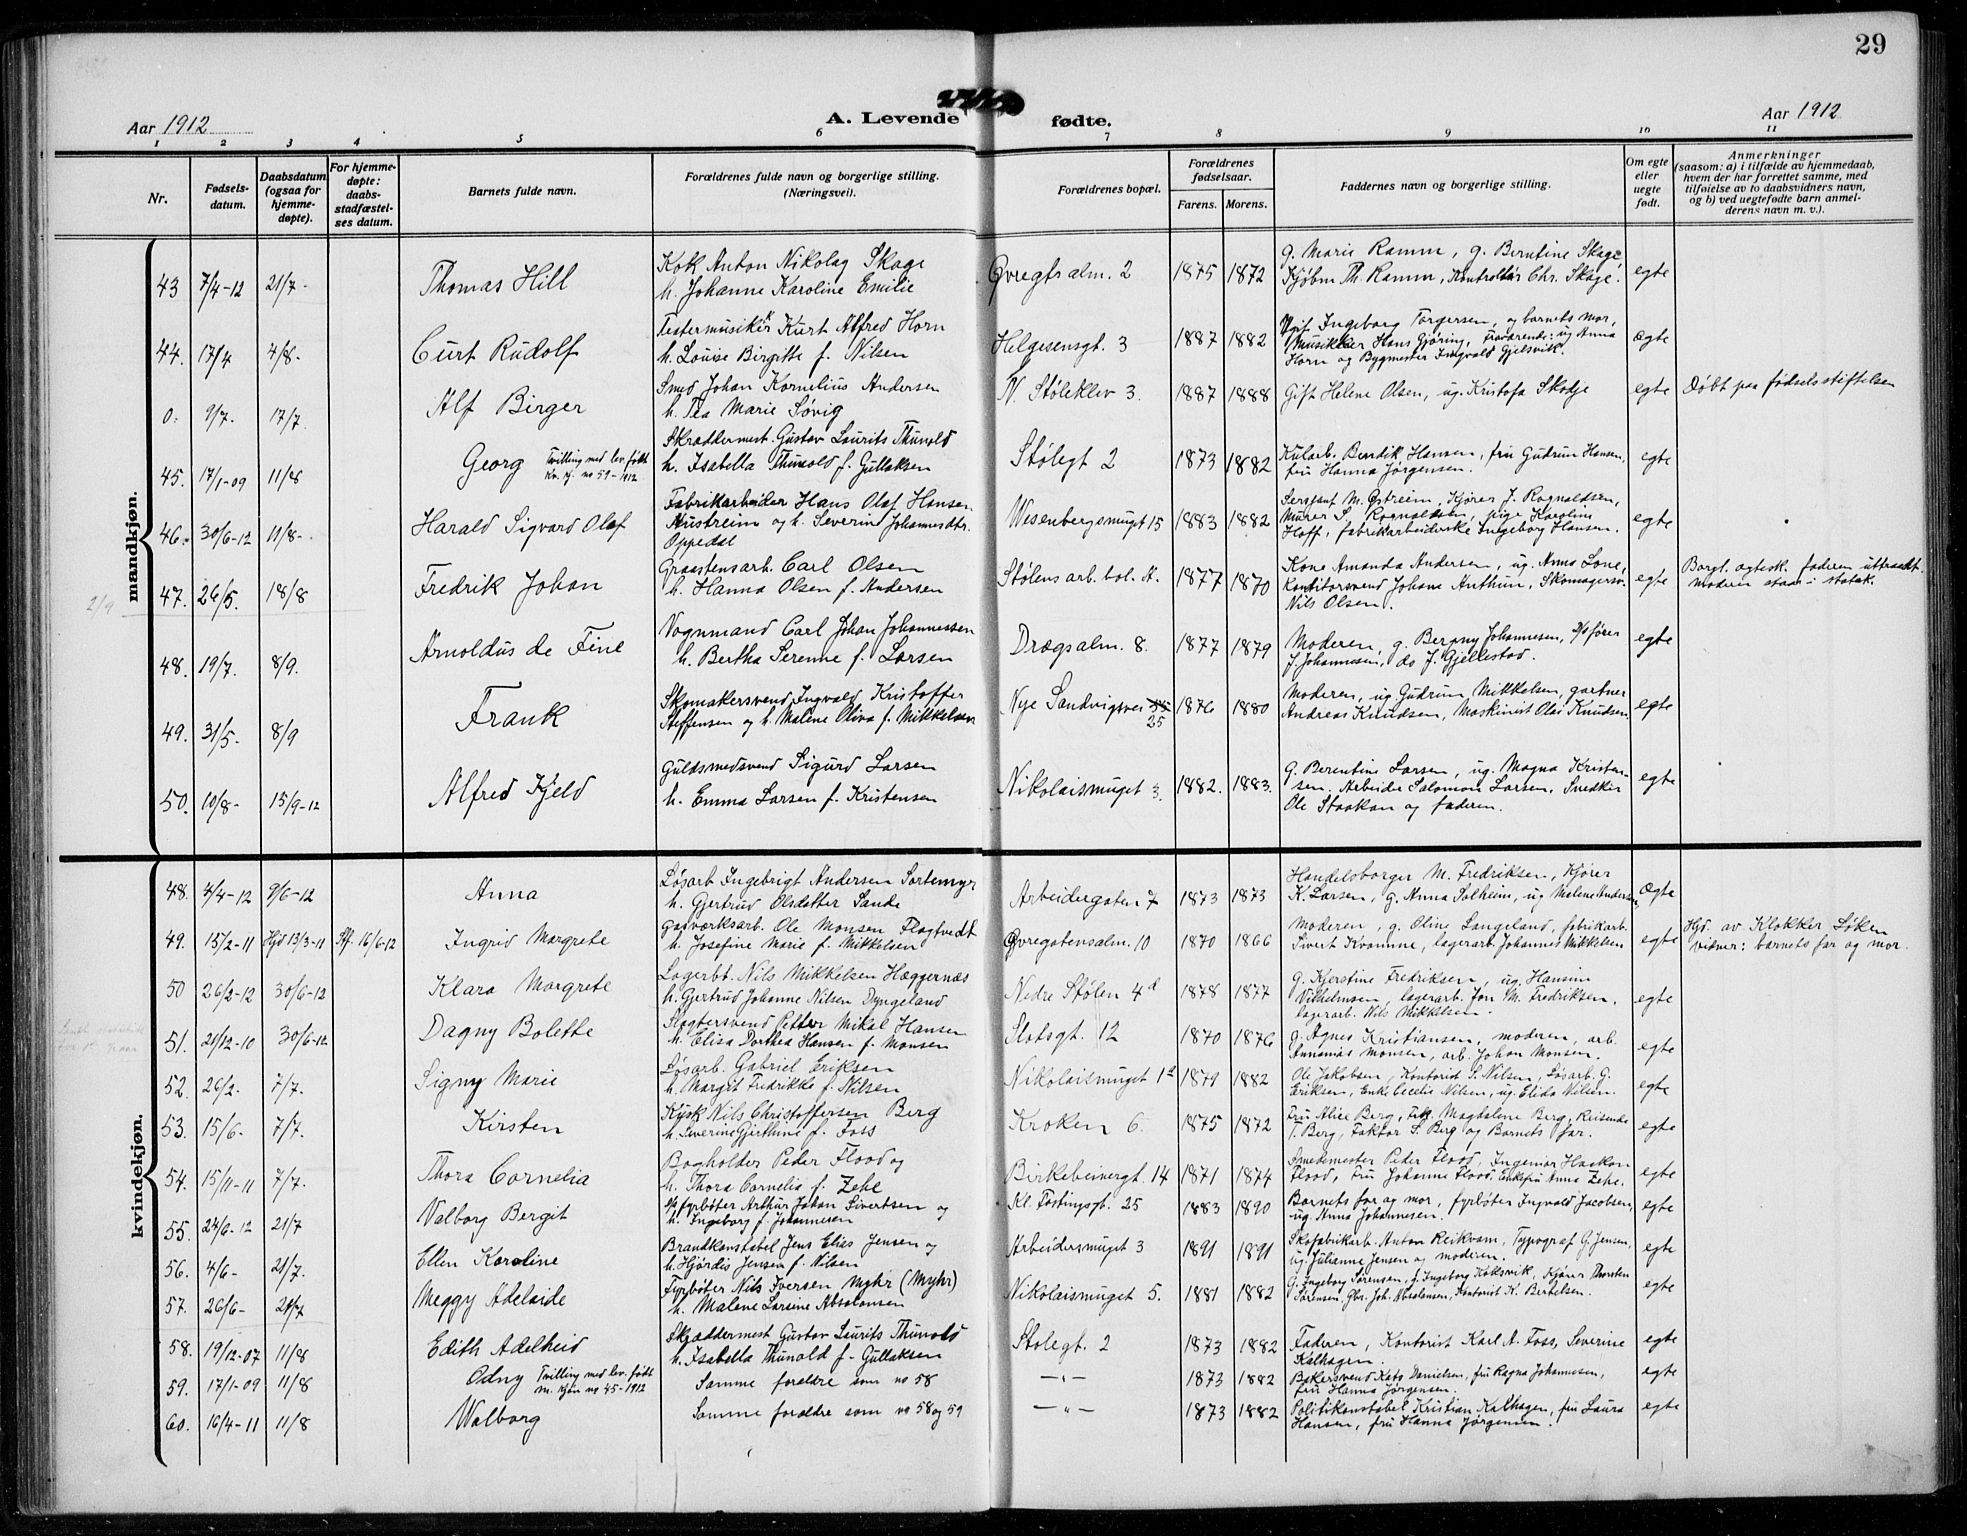 29
Aar 1912
A. Levende fødte.
Aar 1912
1 2 3 4 5 6 7 8 9 10 11
Nr.
Fødsels-
datum.
Daabsdatum
(ogsaa for
hjemme-
døpte).
For hjemme-
døpte:
daabs-
stadfæstel-
ses datum.
Barnets fulde navn.
Forældrenes fulde navn og borgerlige stilling.
(Næringsvei).
Forældrenes bopæl.
Forældrenes
fødselsaar.
Farens. Morens.
Faddernes navn og borgerlige stilling.
Om egte
eller
uegte
født.
Anmerkninger
(saasom: a) i tilfælde av hjemmedaab,
hvem der har forrettet samme, med
tilføielse av to daabsvidners navn,
og b) ved uegtefødte barn anmel-
derens navn m. v.).
mandkjøn.
43 7/4-12 21/7- Thomas Hill
Kok Anton Nikolay Skage
h. Johanne Karoline Emilie
Øvregts alm. 2 1875 1872
g. Marie Ramm, g. Berntine Skage,
Kjøbm Th. Ramm, Kontrollør Chr. Skage.
egte
44. 17/4 4/8- Curt Rudolf
Testermusiker Kurt Alfred Horn
h. Louise Birgitte f. Nilsen
Helgesensgt. 3 1887 1882
Ingeborg Torgersen, og barnets mor,
Musikker Hans Gjøring, fraværende: ug Anna
Horn og Bygmester Ingvald Gjelsvik.
Ægte
0. 9/7. 17/7. Alf Birger
Smed Johan Kornelius Andersen
h. Tea Marie Søvig
N. Støleklev 3. 1887 1888
Gift Helene Olsen, ug. Kristofa Skotje
egte
Døbt paa fødselsstiftelsen
45. 17/1-09 11/8 Georg Tvilling med lev. født
Kv. kj. no 59-1912.
Skræddermest. Gustav Laurits Thunold
h. Isabella Thunold f. Gullaksen
Stølegt 2 1873 1882
Kularb. Bendik Hansen, fru Gudrun Hansen,
fru Hanna Jørgensen.
egte
46. 30/6-12 11/8- Harald Sigvard Olaf
Fabrikarbeider Hans Olaf Hansen
Austreim og h. Severine Johannesdtr.
Oppedal
Wesenbergsmuget 15 1883 1882
Sergeant M. Østreim, Kjører J. Ragnaldsen,
Murer S. Ragnaldsen, pige Karoline
Hoff, fabrikarbeiderske Ingeborg Hansen.
egte
2/9
47. 26/5. 18/8 Fredrik Johan
Graastensarb. Carl Olsen
h. Hanna Olsen f. Andersen
Stølens arb. bol. A. 1877 1870
Kone Amanda Andersen, ug. Anna Lone,
Konditorsvend Johane Anthun, Skomagersv.
Nils Olsen.
egte
Borgl. egtesk. faderen uttraadt
moderen staar i statsk.
48. 19/7. 8/9. Arnoldus de Fine
Vognmand Carl Johan Johannessen
h. Bertha Serenne f. Larsen
Drægsalm. 8. 1877 1879
Moderen, g. Bergny Johannesen, D/s fører
J. Johannesen, do J. Gjellestad.
egte
49. 31/5- 8/9 Frank
Skomakersvend Ingvald Kristoffer
Steffensen og h. Malene Oliva f. Mikkelsen
Nye Sandvigsvei 25 1876 1880
Moderen, ug. Gudrun Mikkelsen, gartner
Andreas Knudsen, Maskinist Olai Knudsen.
egte
50. 10/8- 15/9-12 Alfred Kjeld
Guldsmedsvend Sigurd Larsen
h. Emma Larsen f. Kristensen
Nikolaismuget 3. 1882. 1883.
G. Berentine Larsen, ug. Magna Kristen-
sen. Arbeider Salomon Larsen, Snedker
Ole Staakan og faderen.
egte
kvindekjøn.
48. 4/4-12 9/6-12 Anna
Løsarb Ingebrigt Andersen Sortemyr
h. Gjertrud Olsdatter Sande
Arbeidergaten 7 1873 1873
Handelsborger M. Fredriksen, Kjører
K. Larsen, g. Anna Solheim, ug. Malene Andersen,
Ægte
49. 15/2-11 Hjd 13/3-11 Stf. 16/6-12 Ingrid Margrete
Gasværksarb. Ole Monsen Flagtvedt
h. Josefine Marie f. Mikkelsen
Øvregatensalm. 10 1870 1866
Moderen, g. Oline Langeland, fabrikarb.
Sivert Kvamme, lagerarb. Johannes Mikkelsen
egte
Hjd. av Klokker Løken
vidner: barnets far og mor.
50 26/2-12 30/6-12 Klara Margrete
Lagerbt. Nils Mikkelsen Hæggernæs
h. Gjertrud Johanne Nilsen Dyngeland
Nedre Stølen 4d 1878 1877
G. Kjerstine Fredriksen, ug. Hansine
Vilhelmsen, lagerarb. Jon M. Fredriksen.
lagerarb. Nils Mikkelsen.
egte
51. 21/12-10 30/6-12 Dagny Bolette
Slagtersvend Petter Mikal Hansen
h. Elisa Dorthea Hansen f. Monsen
Slotsgt. 12 1870 1876
g. Agnes Kristiansen, moderen, arb.
Annanias Monsen, arb. Johan Monsen.
egte
52. 26/2. 7/7. Signy Marie
Løsarb. Gabriel Eriksen
h. Margit Fredrikke f. Nilsen
Nikolaismuget 1a 1879 1882
Ole Jakobsen, Kontorist S. Nilsen, Løsarb. G.
Eriksen, Enke Cecilie Nilsen, ug. Elida Nilsen.
egte
53. 15/6- 7/7. Kirsten
Kusk Nils Christoffersen Berg
h. Severine Gjerthine f. Foss
Kroken 6. 1875 1872
Fru Alice Berg, Frk. Magdalene Berg, Reisende
T. Berg, Faktor S. Berg og Barnets far.
egte
54. 15/11-11 7/7. Thora Cornelia
Bogholder Peder Flood og
h. Thora Cornelia f. Zehe
Birkebeinergt. 14 1871 1874
Smedemester Peder Flood, Ingeniør Haakon
Flood, Fru Johanne Flood, Enkefru Anna Zehe.
egte
55. 24/6-12 21/7 Valborg Bergit
fyrbøter Arthur Johan Sivertsen og
h. Ingeborg f. Johannesen
Kl. Tostingsgt. 25 1883 1890
Barnets far og mor, fyrbøter Ingvald Jacobsen,
ug. Anna Johannesen.
egte
56. 4/6- 21/7. Ellen Karoline
Brandkonstabel Jens Elias Jensen og
h. Hjørdis Jensen f. Nilsen
Arbeidersmuget 3 1891 1891
Skofabrikarb. Anton Reikvam, Typograf G. Jensen,
ug. Julianne Jensen og moderen.
egte
57. 26/6- 21/7 Meggy Adelaide
Fyrbøter Nils Iversen Myhr (Myhr)
h. Malene Larsine Absalonsen
Nikolaismuget 5. 1881 1882
G. Ingeborg Sørensen, f. Ingeborg Køksvik, Kjører Thorsten
Sørensen, Gbr. Joh. Absalonsen, Kontorist K. Bertelsen.
egte
58. 19/12-07 11/8 Edith Adelheid
Skræddermest Gustav Laurits Thunold
h. Isabella Thunold f. Gullaksen
Stølegt. 2 1873 1882
Faderen, Kontorist Karl A. Foss, Severine
Kalhagen.
egte
59. 17/1-09 11/8 Odny Tvilling med lev. født
m. kjøn no 45-1912
Samme forældre som no 58
—"— 1873 1882
Bakersvend Kato Danielsen, fru Ragna Johannesen,
fru Hanna Jørgensen.
egte
60. 16/4-11 11/8 Walborg
Samme forældre som no 58 og 59
—"— 1873 1882
Politikonstabel Kristian Kalhagen, fru Laura
Hansen, fru Hanna Jørgensen.
egte